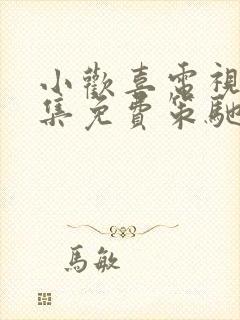 小歡喜電視
集免費策馳
馬敏